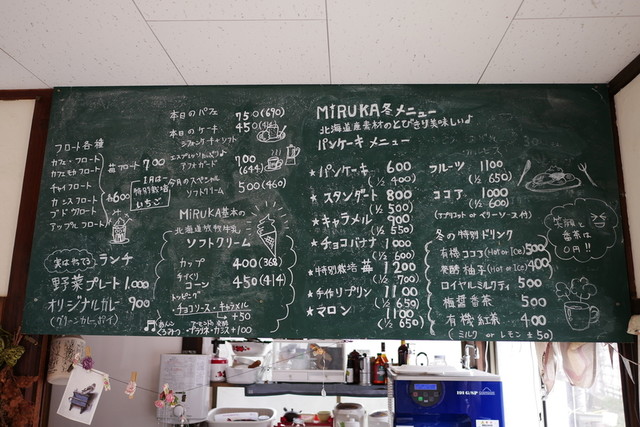 本日のパフェ 750(690)
本日のケーキ 450(414)
シフォンケーキ+ソフト
エスプレッソたっぷりよ
アフォガード 700
(644)
今月のスペシャル
ソフトクリーム 500(460)
フロート各種
カフェ・フロート
カフェモカフロート
チャイフロート
カシスフロート
フロート
アップルフロート
各600
苺フロート 700
1月は→
特別栽培
いちご
実はやってるランチ
野菜プレート 1,000
オリジナルカレー 900
(グリーンカレーっぽい)
MiRUKA基本の
北海道放牧牛乳
ソフトクリーム
カップ 400(368)
手づくり
コーン 450(414)
トッピング
チョコソース・キャラメル
→+50
くろみつ
グラネ・カシス+100
MiRUKA冬メニュー
北海道産素材のとびきり美味しいよ
パンケーキ メニュー
★パンケーキ 600
(½ 400)
★スタンダード 800
(½ 500)
★キャラメル 900
(½ 550)
★チョコバナナ 1000
(½ 600)
★特別栽培 苺 1200
(½ 700)
★手作りプリン 1100
(½ 650)
★マロン 1100
(½ 650)
フルーツ 1100
(½ 650)
ココア 1000
(½ 600)
冬の特別ドリンク
有機ココア(Hot or ICe) 500
発酵柚子(Hot or ICe) 400
ロイヤルミルクティ 500
梅醤番茶 500
有機紅茶 400
(ミルク or レモン +50)
笑顔と
番茶は
0円!!